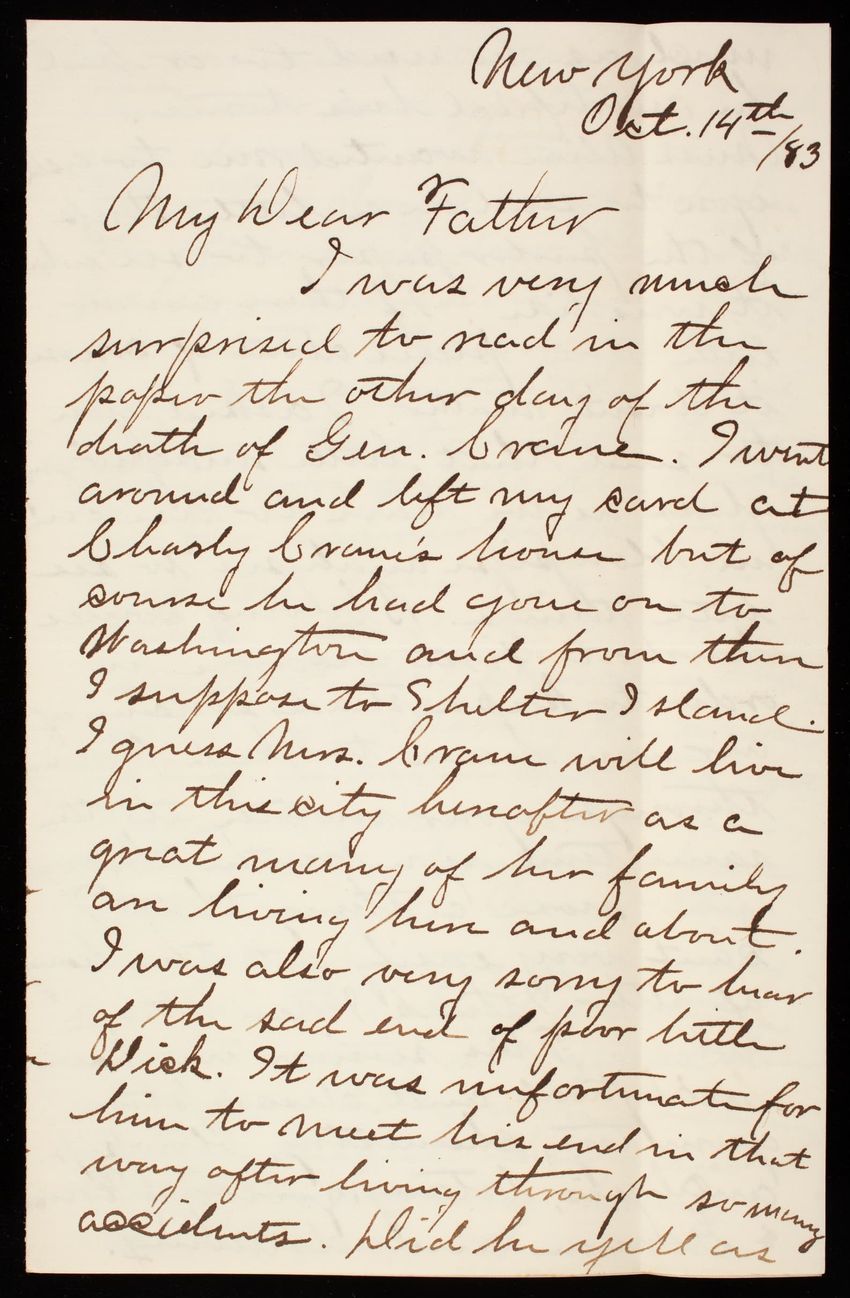 New York
Oct. 14th/83
My Dear Father
I was very much
surprised to read in the
paper the other day of the
death of Gen. Crane. I went
around and left my card at
Charly Crane's house but of
course he had gone on to
Washington and from there
I suppose to Shelter Island.
I guess Mrs. Crane will live
in this city hereafter as a
great many of her family
are living here and about.
I was also very sorry to hear
of the sad end of poor little
Dick. It was unfortunate for
him to meet his end in that
way after living through so many
accidents. Did he yell as